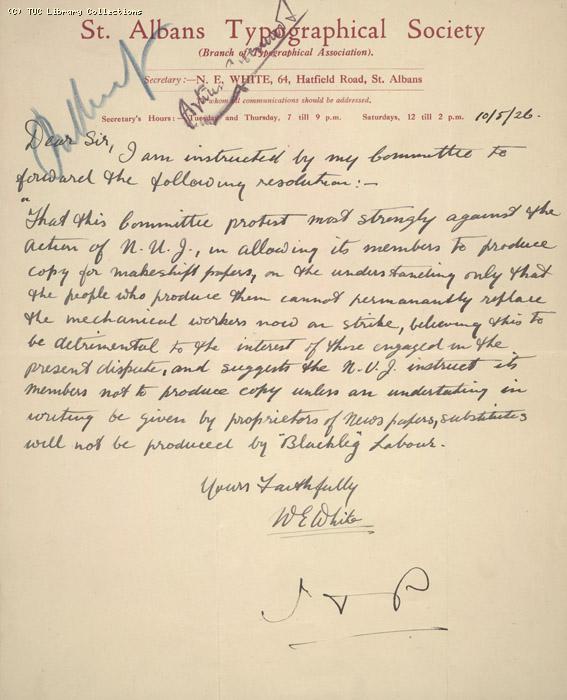 (C) TUC Library Collections
St. Albans Typographical Society
(Branch of Typographical Association).
Secretary:—N. E. WHITE, 64, Hatfield Road, St. Albans
whom all communications should be addressed.
Secretary's Hours:—Tuesday and Thursday, 7 till 9 p.m. Saturdays, 12 till 2 p.m. 10/5/26.
Dear Sir,
I am instructed by my Committee to
forward the following resolution:—
"That this Committee protest most strongly against the
action of N.U.J., in allowing its members to produce
copy for makeshift papers, on the understanding only that
the people who produce them cannot permanantly replace
the mechanical workers now on strike, believing this to
be detrimental to the interest of those engaged in the
present dispute, and suggests the N.U.J. instruct its
members not to produce copy unless an undertaking in
writing be given by proprietors of Newspapers, substitutes
will not be produced by "Blackleg" Labour.
Yours Faithfully
W E White